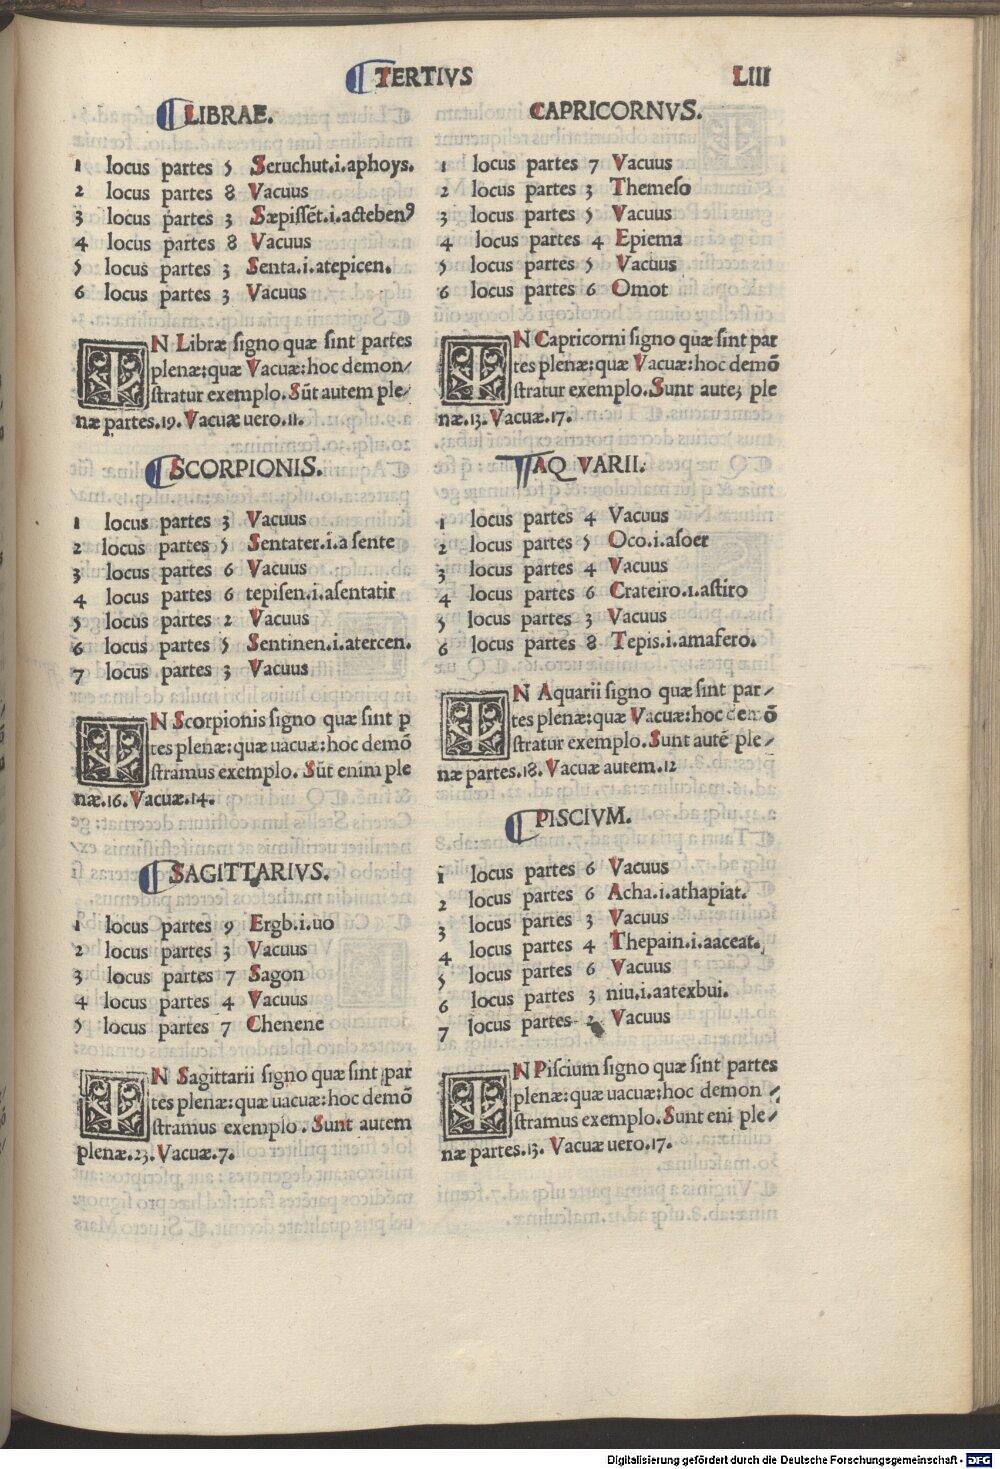 TERTIVS LIII
LIBRAE.
1 locus partes 5 Seruchut.i.aphoys.
2 locus partes 8 Vacuus
3 locus partes 3 Sæpissēt.i.actebenꝰ
4 locus partes 8 Vacuus
5 locus partes 3 Senta.i.atepicen.
6 locus partes 3 Vacuus
IN Libræ signo quæ sint partes
plenæ:quæ Vacuæ:hoc demon/
stratur exemplo.Sūt autem ple/
næ partes.19.Vacuæ uero.11.
SCORPIONIS.
1 locus partes 3 Vacuus
2 locus partes 5 Sentater.i.a sente
3 locus partes 6 Vacuus
4 locus partes 6 tepisen.i.asentatir
5 locus partes 2 Vacuus
6 locus partes 5 Sentinen.i.atercen.
7 locus partes 3 Vacuus
IN Scorpionis signo quæ sint p
tes plenæ:quæ uacuæ:hoc demō
stramus exemplo. Sūt enim ple
næ.16.Vacuæ.14.
SAGITTARIVS.
1 locus partes 9 Ergb.i.uo
2 locus partes 3 Vacuus
3 locus partes 7 Sagon
4 locus partes 4 Vacuus
5 locus partes 7 Chenene
IN Sagittarii signo quæ sint par
tes plenæ:quæ uacuæ:hoc demō
stramus exemplo. Sunt autem
plenæ.23.Vacuæ.7.
CAPRICORNVS.
1 locus partes 7 Vacuus
2 locus partes 3 Themeso
3 locus partes 5 Vacuus
4 locus partes 4 Epiema
5 locus partes 5 Vacuus
6 locus partes 6 Omot
IN Capricorni signo quæ sint par
tes plenæ:quæ Vacuæ:hoc demō
stratur exemplo.Sunt auteꝫ ple
næ.13.Vacuæ.17.
AQVARII.
1 locus partes 4 Vacuus
2 locus partes 5 Oco.i.asoer
3 locus partes 4 Vacuus
4 locus partes 6 Crateiro.i.astiro
5 locus partes 3 Vacuus
6 locus partes 8 Tepis.i.amafero.
IN Aquarii signo quæ sint par/
tes plenæ:quæ Vacuæ:hoc demō
stratur exemplo.Sunt autē ple/
næ partes.18.Vacuæ autem.12
PISCIVM.
1 locus partes 6 Vacuus
2 locus partes 6 Acha.i.athapiat.
3 locus partes 3 Vacuus
4 locus partes 4 Thepain.i.aaceat.
5 locus partes 6 Vacuus
6 locus partes 3 niu.i.aatexbui.
7 locus partes 2 Vacuus
IN Piscium signo quæ sint partes
plenæ:quæ uacuæ:hoc demon/
stramus exemplo.Sunt eni ple/
næ partes.13. Vacuæ uero.17.
Digitalisierung gefördert durch die Deutsche Forschungsgemeinschaft - DFG